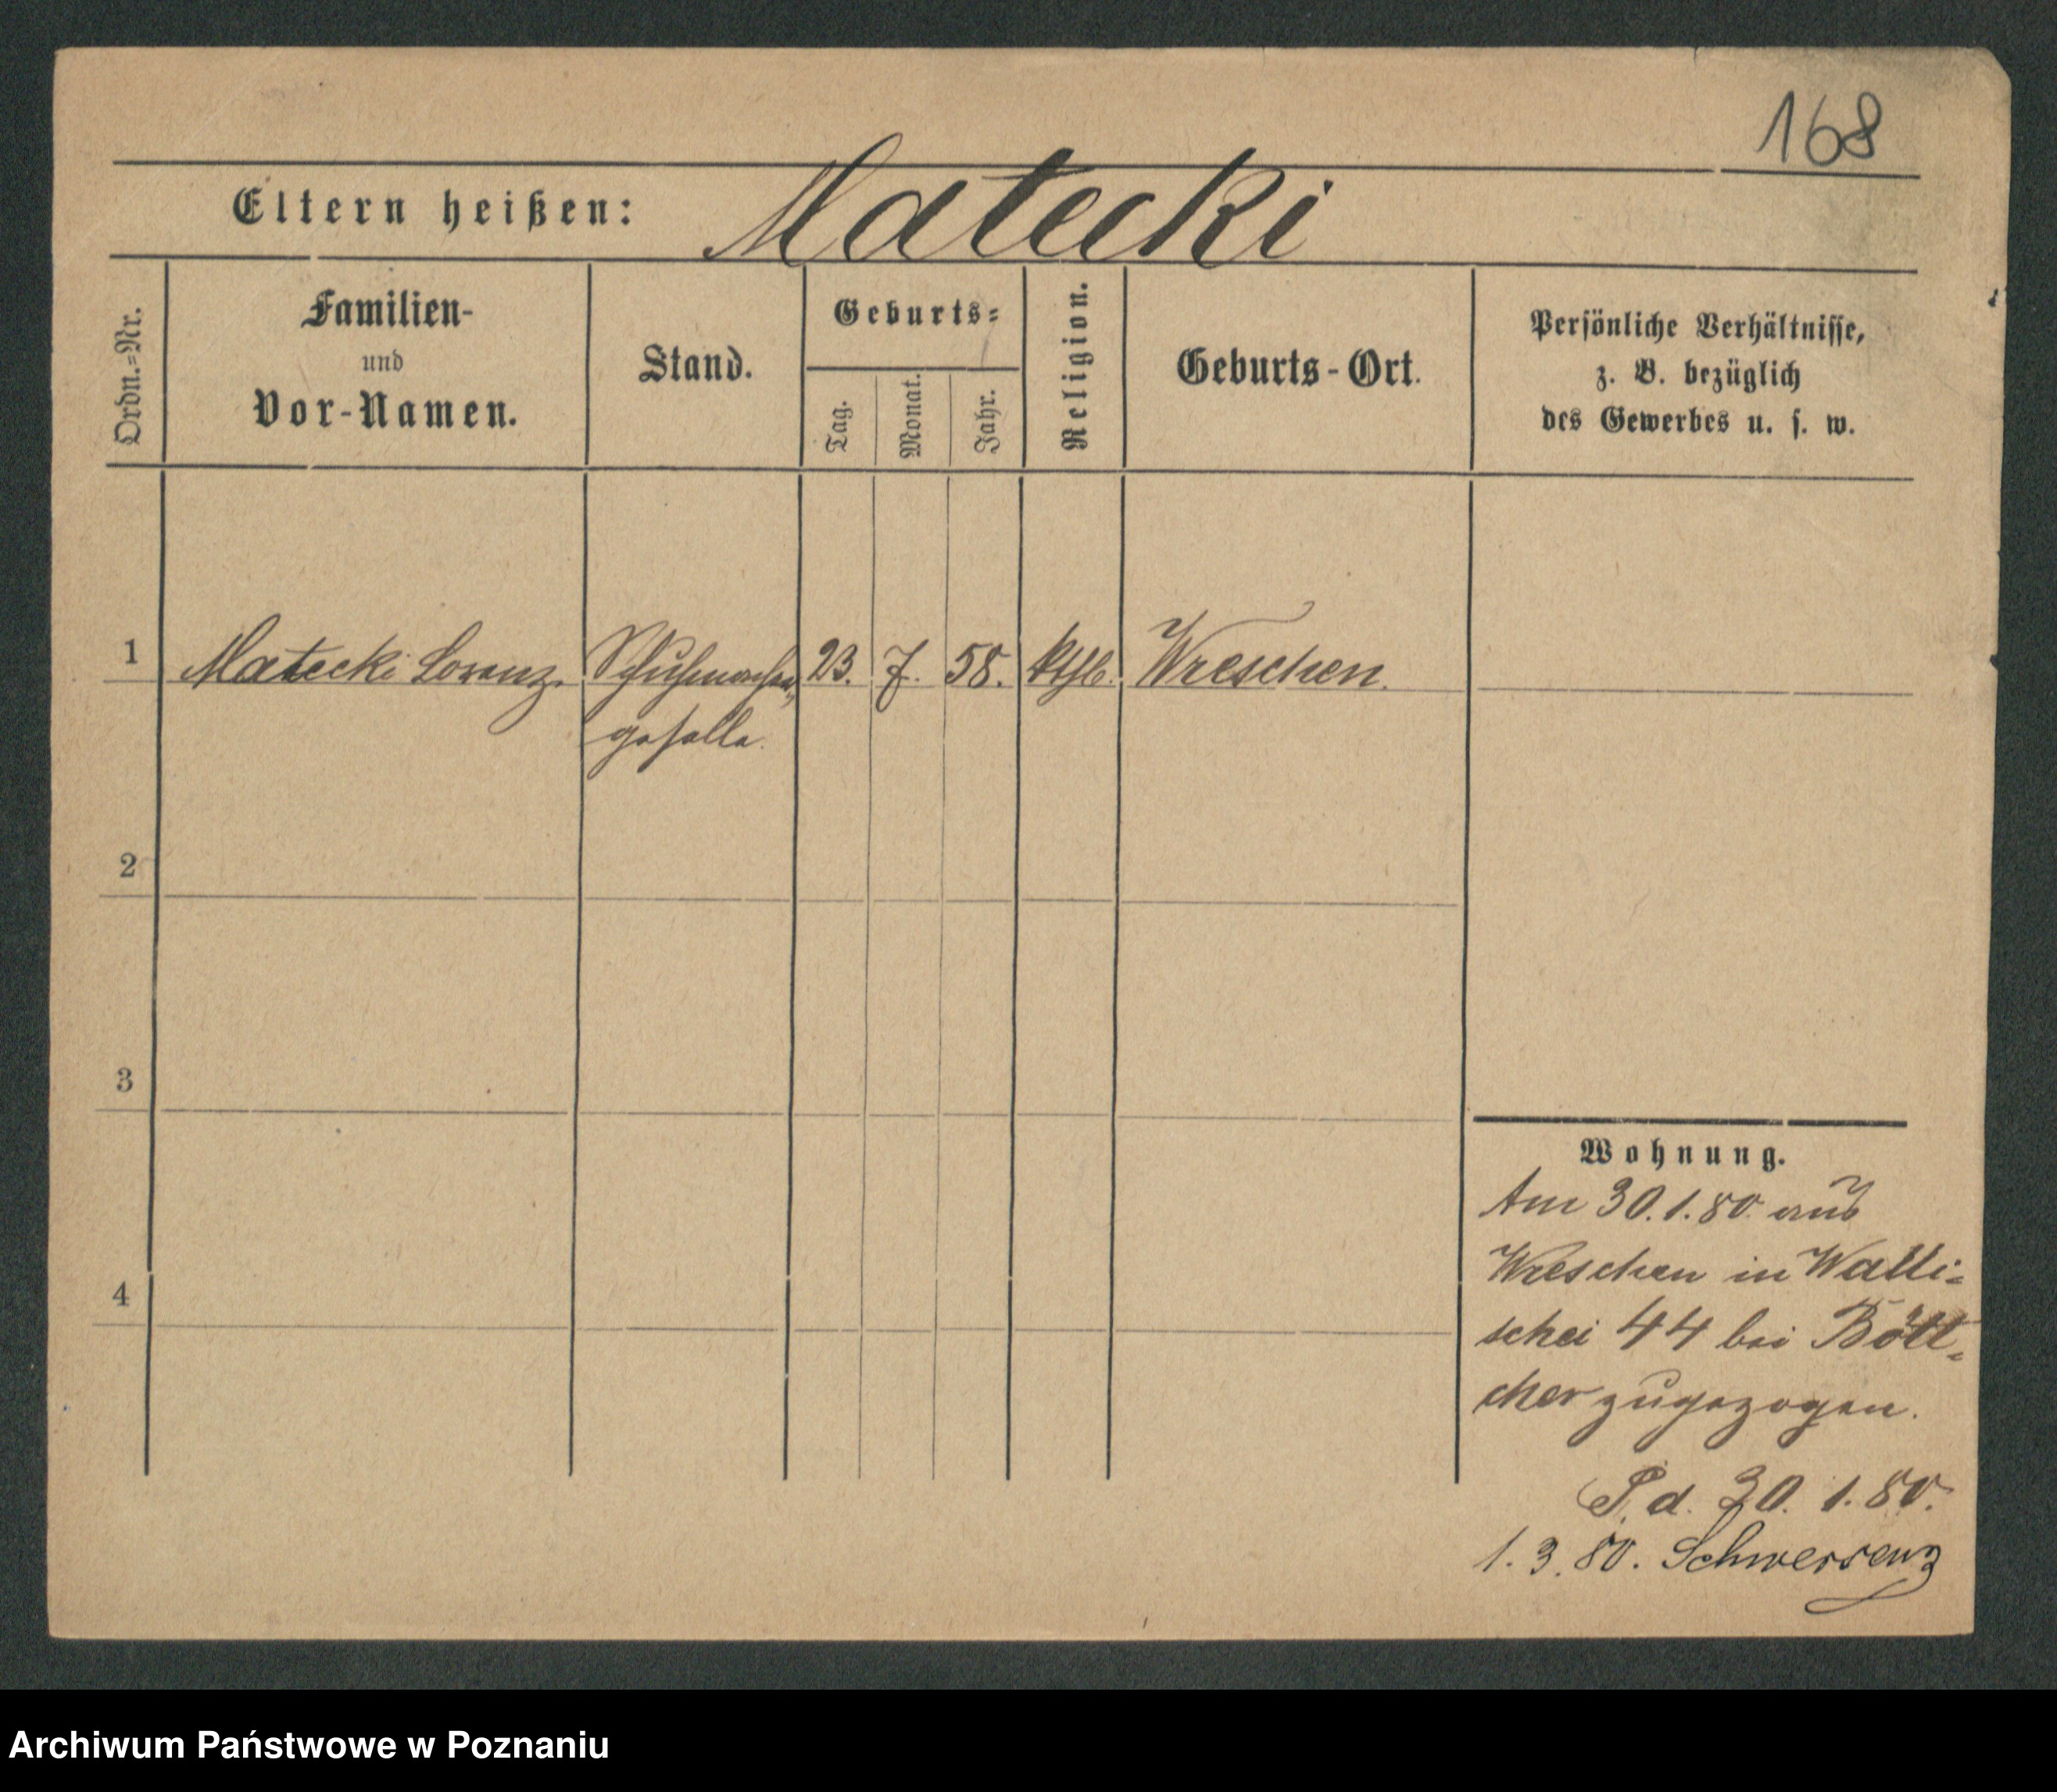 168
Eltern heißen: Matecki
Ordn.=Nr.
Familien-
und
Vor-Namen.
Stand.
Geburts=
Tag.
Monat.
Jahr.
Religion.
Geburts-Ort.
Persönliche Verhältnisse,
z. B. bezüglich
des Gewerbes u. s. w.
1 Matecki Lorenz. Schuhmacher 23. 7. 58. kthl. Wreschen.
geselle.
2
3
4
Wohnung.
Am 30.1.80. aus
Wreschen in Walli=
schei 44 bei Bött=
cher zugezogen.
P. d. 30. 1. 80.
1. 3. 80. Schwersenz
Archiwum Państwowe w Poznaniu